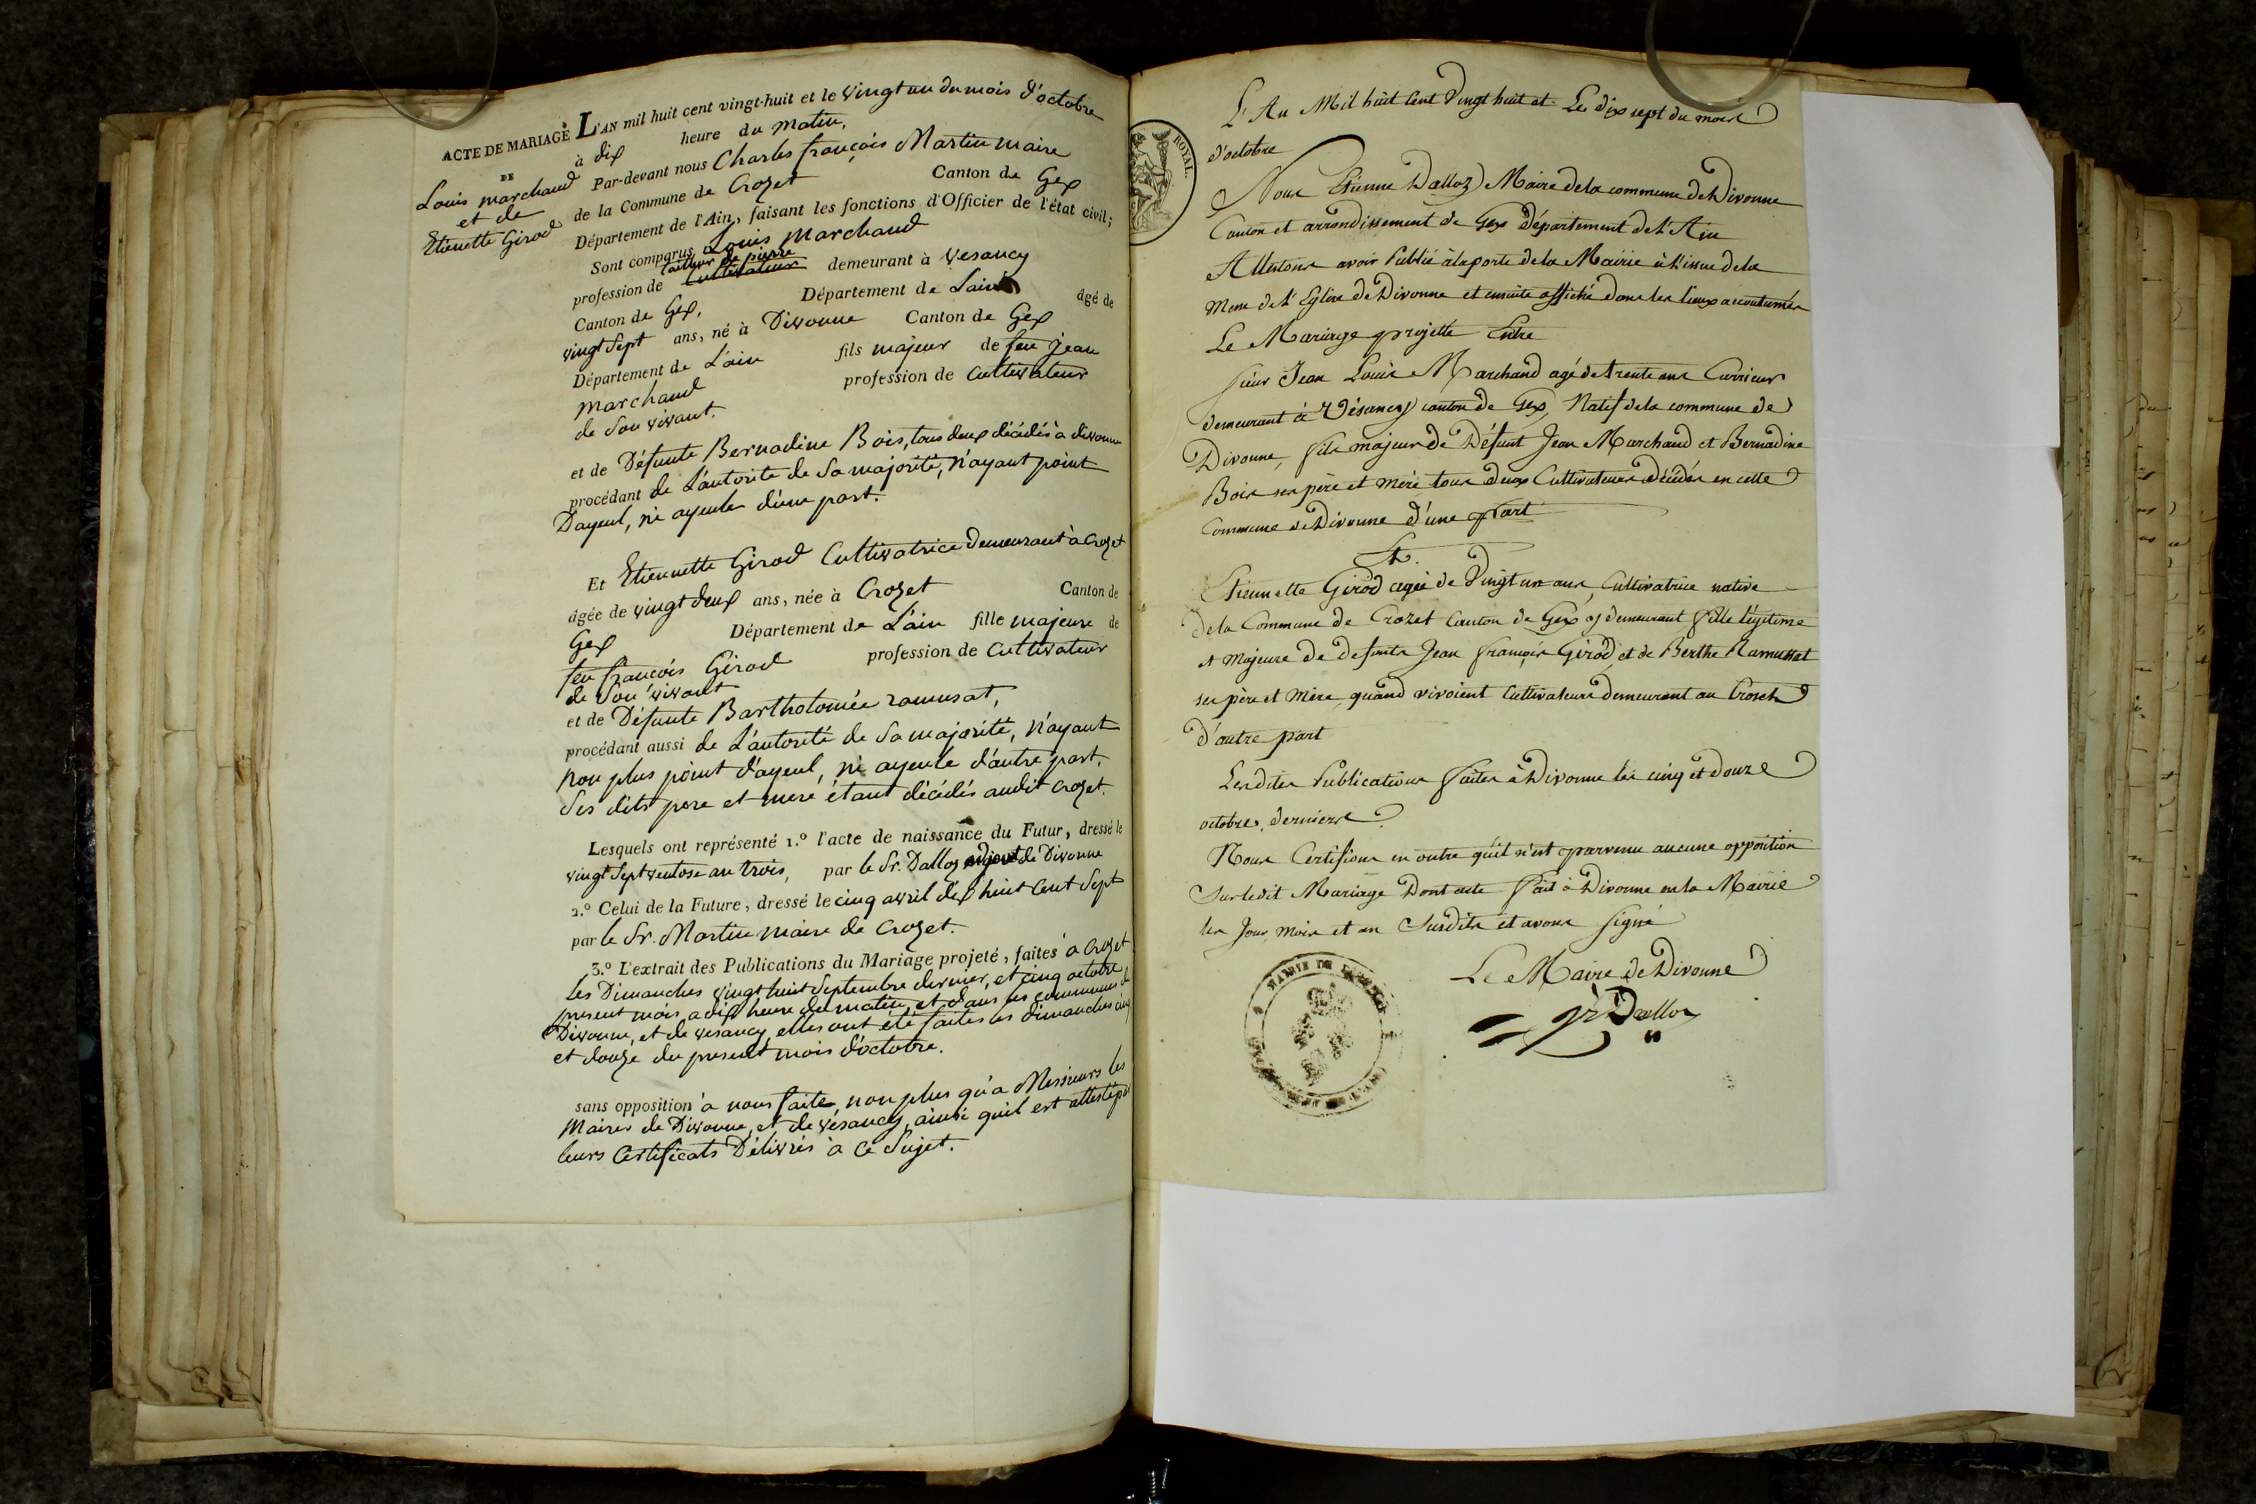 ACTE DE MARIAGE
DE
Louis marchand
et de
Etienette Girod
L'AN mil huit cent vingt-huit et le vingt un du mois d'octobre
à dix heure du matin,
Par-devant nous Charles françois Martin maire
de la Commune de Crozet Canton de Gex
Département de l'Ain, faisant les fonctions d'Officier de l'état civil;
Sont comparus Louis marchand
tailleur de pierre
profession de cultivateur demeurant à Vesancy
Canton de Gex, Département de Lain âgé de
vingt sept ans, né à Divonne Canton de Gex
Département de L'ain fils majeur de feu jean
marchand profession de cultivateur
de Son vivant.
et de Défunte Bernadine Bois, tous deux décédés à divonne
procédant de L'autorité de Sa majorité, n'ayant point
Dayeul, ni ayeule d'une part.
Et Etiennette Girod Cultivatrice demeurant à Crozet
âgée de vingt deux ans, née à Crozet Canton de
Gex Département de L'ain fille majeure de
feu françois Girod profession de cultivateur
de Son vivant
et de Défunte Bartholomée ramusat,
procédant aussi de L'autorité de Sa majorité, n'ayant
non plus point d'ayeul, ni ayeule d'autre part.
Ses dits pere et mere étant décédés audit crozet.
Lesquels ont représenté 1.º l'acte de naissance du Futur, dressé le
vingt Sept ventose an trois, par le Sr. Dalloz adjoint de Divonne
2.º Celui de la Future, dressé le cinq avril dix huit Cent Sept
par le Sr. Martin maire de Crozet.
3.º L'extrait des Publications du Mariage projeté, faites à Crozet
les Dimanches vingt huit Septembre dernier, et cinq octobre
present mois, a dix heure du matin, et dans les communes de
Divonne, et de vesancy, elles ont été faites les dimanches cinq
et douze du present mois d'octobre.
sans opposition à nous faite, non plus qu'à Messieurs les
Maires de Divonne, et de vésancy, ainsi quil est attesté par
leurs Certificats Délivrés à ce Sujet.
ROYAL.
L'An Mil huit Cent Vingt huit et Le dix sept du mois
d'octobre
Nous Etienne Dalloz Maire de la commune de Divonne
Canton et arrondissement de Gex Département de l'Ain
Attestons avoir Publié à la porte de la Mairie à l'issue de la
Messe de l'Eglise de Divonne et ensuite affiché dans les lieux accoutumés
Le Mariage projetté Entre
sieur Jean Louis Marchand agé de trente ans Currieur
demeurant à Vésancy canton de Gex, Natif de la commune de
Divonne, fils majeur de Défunt Jean Marchand et Bernadine
Bois ses père et mère tous deux Cultivateurs décédés en cette
Commune de Divonne d'une part
Et.
Etiennette Girod agée de Vingt un ans, Cultivatrice native
de la Commune de Crozet Canton de Gex y demeurant fille légitime
et Majeure de defunts Jean François Girod et de Berthe Ramussat
ses père et Mère, quand vivoient Cultivateurs demeurant au Croset
d'autre part
Lesdites Publications faites à Divonne les cinq et douze
octobre, derniers
Nous Certifions en outre qu'il n'est parvenu aucune opposition
Sur ledit Mariage Dont acte Fait à Divonne en la Mairie
les Jour, Mois et an Susdits et avons signé
Le Maire de Divonne
Dalloz
MAIRIE DE